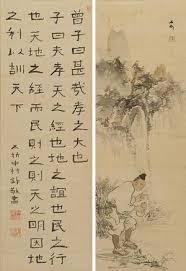 曾子曰甚哉孝之大也
子曰夫孝天之經也地之誼也民之行
也天地之經而民則之則天之明因地
之利以訓天下